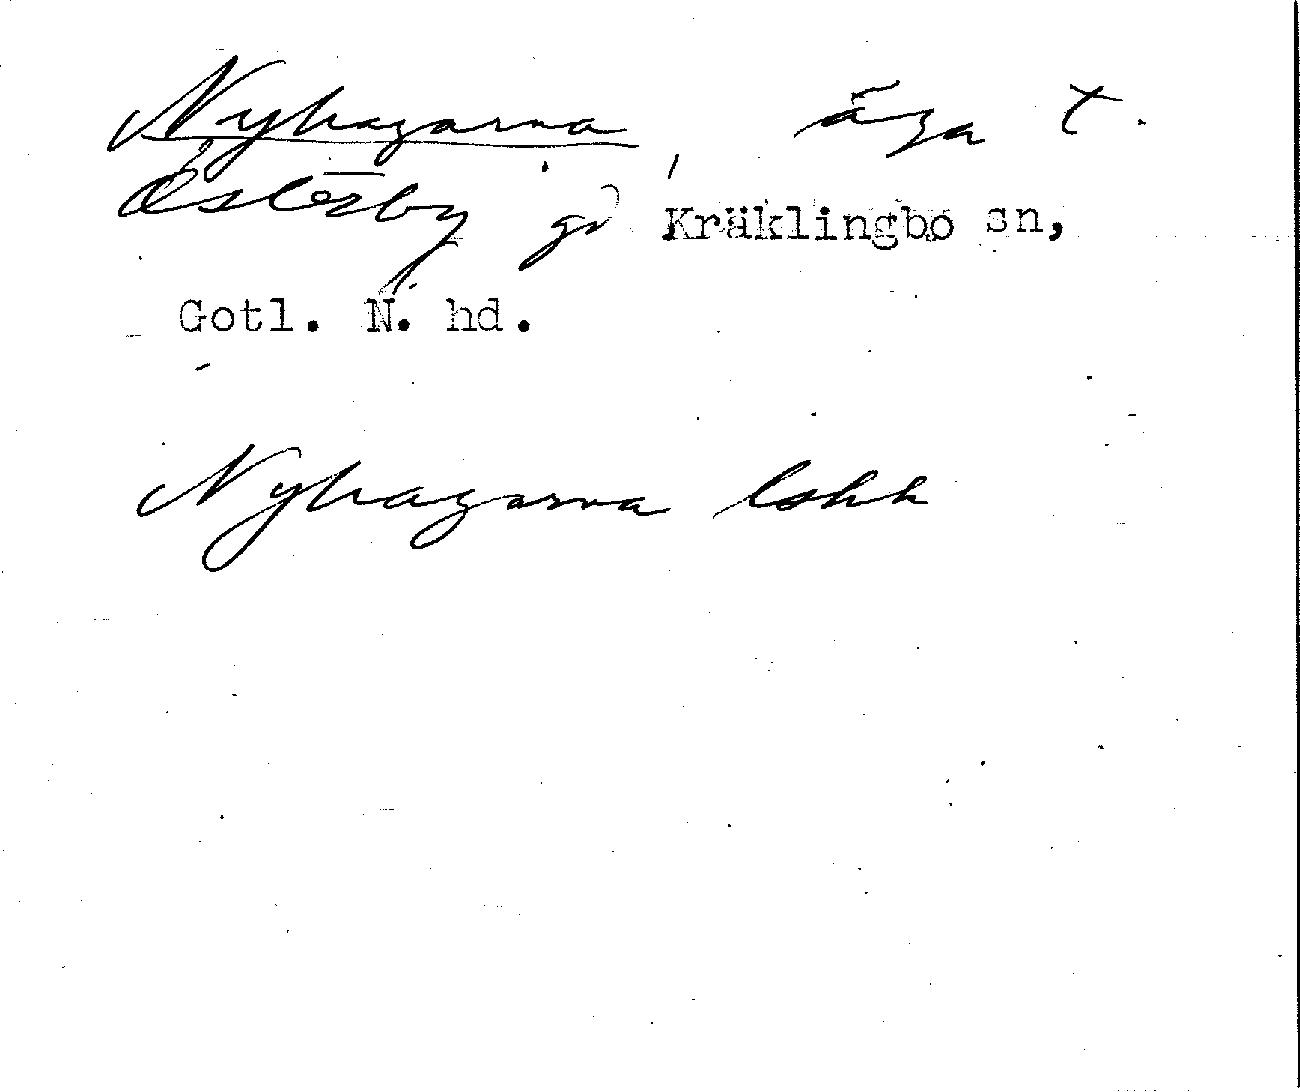 Nyhagarna, äga t.
Österby gd Kräklingbo sn,
Gotl. N. hd.
Nyhagarna lskk